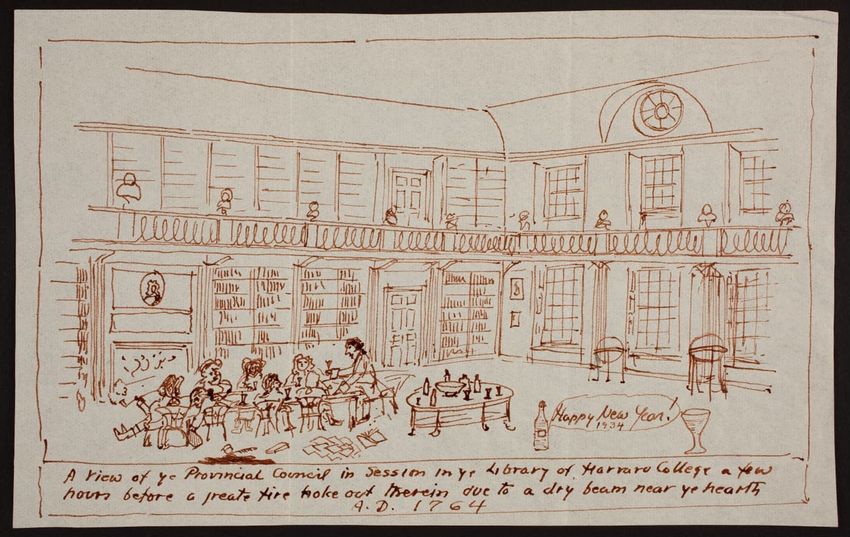 Happy New Year!
1934
A View of ye Provincial Council in Session in ye Library of Harvard College a few
hours before a greate fire broke out therein due to a dry beam near ye hearth
A.D. 1764